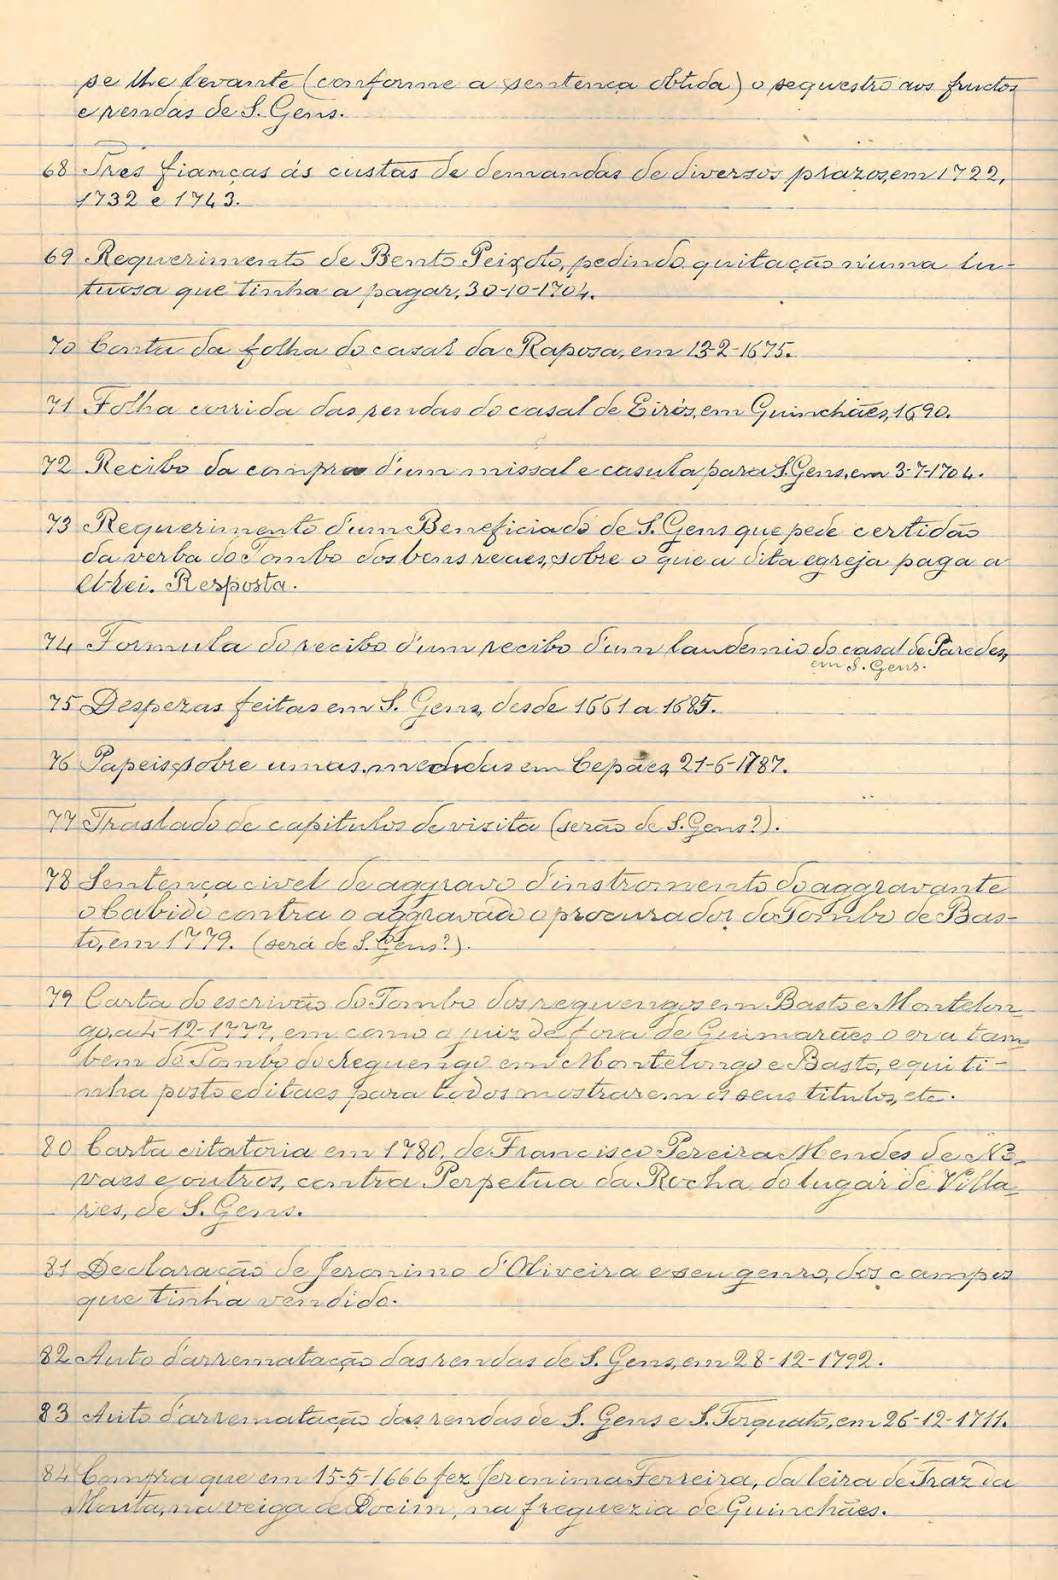 se lhe levante (conforme a sentença obtida) o sequestro aos fructos
e rendas de S. Gens.
68 Tres fianças ás custas de demandas de diversos prazos, em 1722,
1732 e 1743.
69 Requerimento de Bento Peixoto, pedindo quitação n'uma lu-
tuosa que tinha a pagar, 30-10-1704.
70 Conta da folha do casal da Raposa, em 13-2-1675.
71 Folha corrida das rendas do casal de Eirós, em Guinchães, 1690.
72 Recibo da compra d'um missal e casula para S. Gens, em 3-7-1704.
73 Requerimento d'um Beneficiado de S. Gens que pede certidão
da verba do Tombo dos bens reaes, sobre o que a dita egreja paga a
El-rei. Resposta.
74 Formula do recibo d'um recibo d'um laudemio do casal de Paredes,
em S. Gens.
75 Despezas feitas em S. Gens, desde 1661 a 1685.
76 Papeis sobre umas medidas em Cepães, 21-6-1787.
77 Traslado de capitulos de visita (serão de S. Gens?).
78 Sentença civel de aggravo d'instromento do aggravante
o Cabido contra o aggravado o procurador do Tombo de Bas-
to, em 1779. (será de S. Gens?).
79 Carta do escrivão do Tombo dos reguengos em Basto e Montelon-
go, a 4-12-1777, em como o juiz de fora de Guimarães o era tam-
bem do Tombo do Reguengo em Montelongo e Basto, e qui ti-
nha posto editaes para todos mostrarem os seus titulos, etc.
80 Carta citatoria em 1780, de Francisco Pereira Mendes de No-
vaes e outros, contra Perpetua da Rocha do lugar de Villa-
res, de S. Gens.
81 Declaração de Jeronimo d'Oliveira e seu genro, dos campos
que tinha vendido.
82 Auto d'arrematação das rendas de S. Gens, em 28-12-1792.
83 Auto d'arrematação das rendas de S. Gens e S. Torquato, em 26-12-1711.
84 Compra que em 15-5-1666 fez Jeronima Ferreira, da leira de Traz da
Mouta, na veiga de Docim, na freguezia de Guinchães.